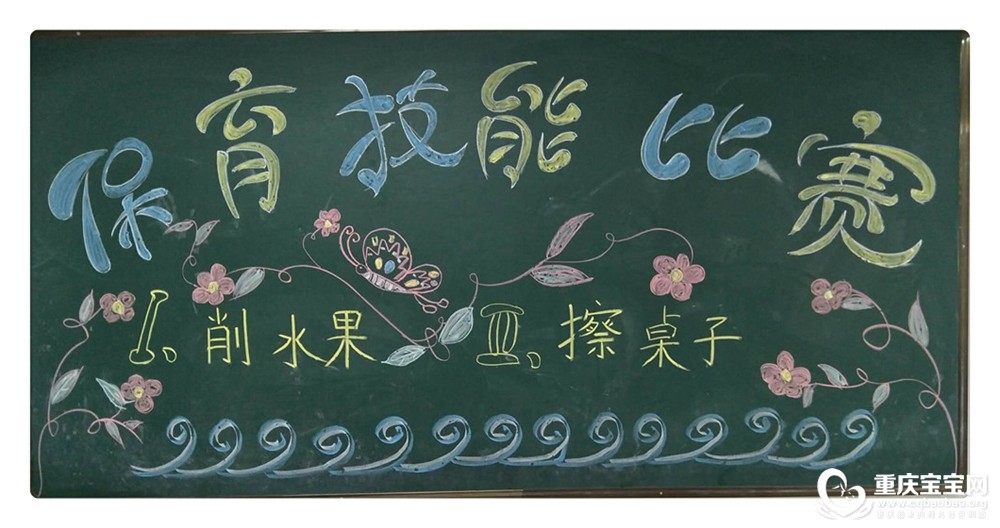 保育技能比赛
I、削水果 II、擦桌子
重庆宝宝网
www.cqbaobao.org